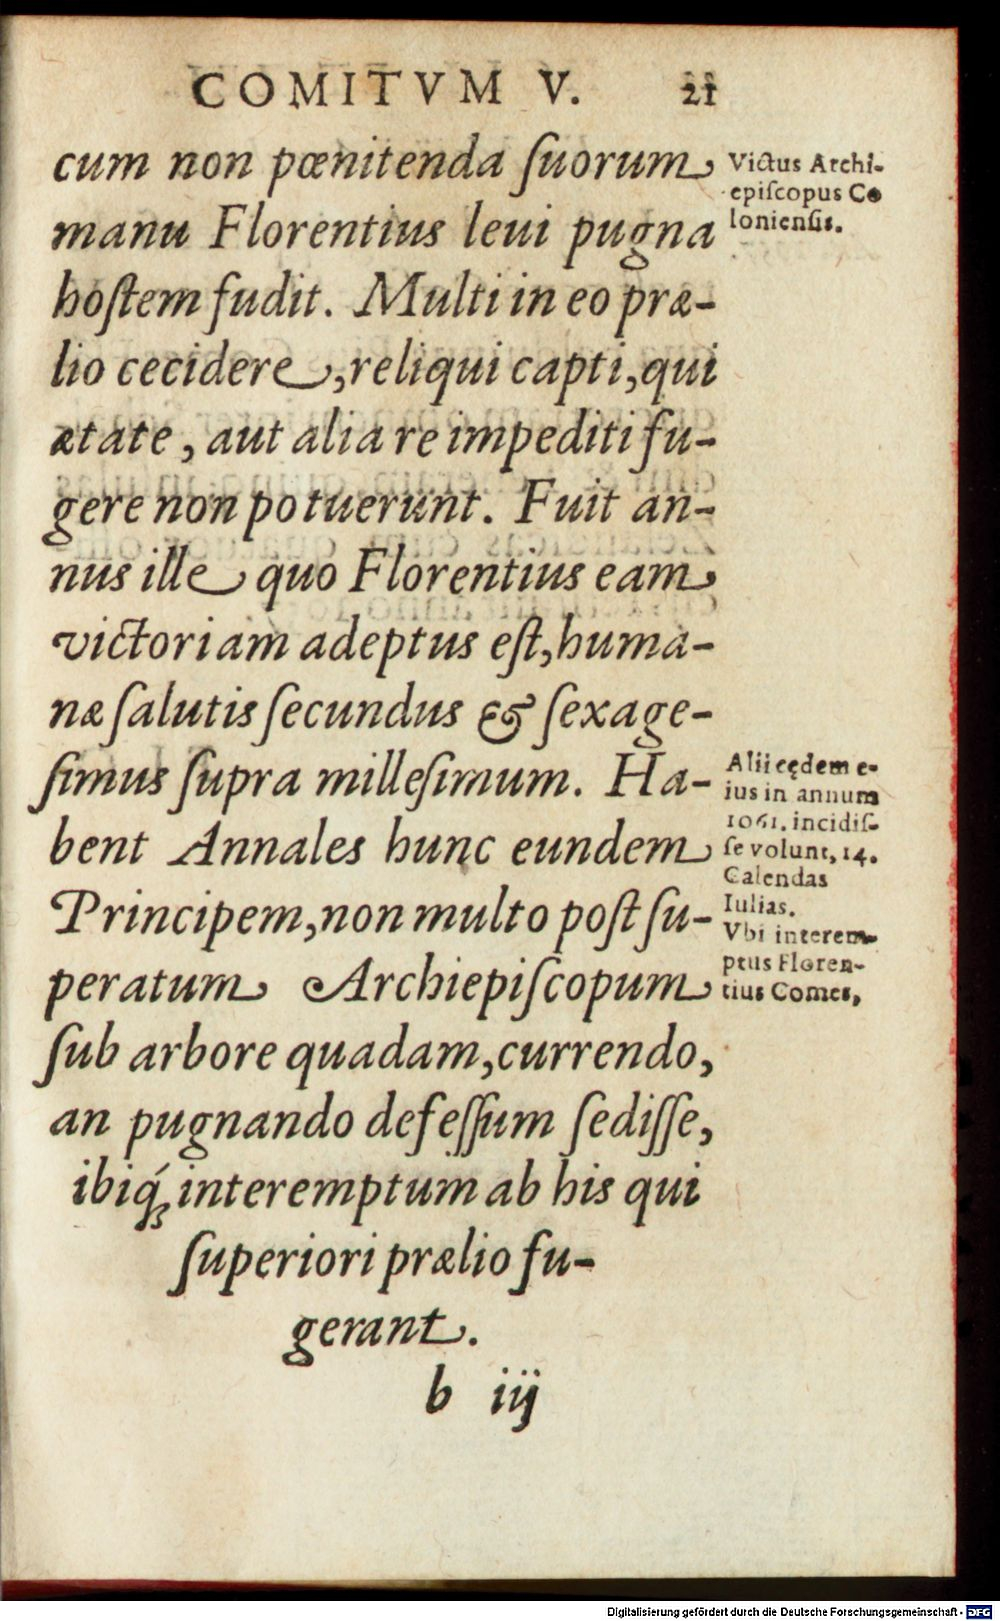 COMITVM V. 21
cum non pœnitenda ſuorum
manu Florentius leui pugna
hoſtem fudit. Multi in eo præ-
lio cecidere, reliqui capti, qui
ætate, aut alia re impediti fu-
gere non potuerunt. Fuit an-
nus ille quo Florentius eam
victoriam adeptus eſt, huma-
næ ſalutis ſecundus & ſexage-
ſimus ſupra milleſimum. Ha-
bent Annales hunc eundem
Principem, non multo poſt ſu-
peratum Archiepiſcopum
ſub arbore quadam, currendo,
an pugnando defeſſum ſediſſe,
ibiq́; interemptum ab his qui
ſuperiori prælio fu-
gerant.
b iij
Victus Archi-
epiſcopus Co
lonienſis.
Alii cędem e-
ius in annum
1061. incidiſ-
ſe volunt, 14.
Calendas
Iulias.
Vbi interem-
ptus Floren-
tius Comes,
Digitalisierung gefördert durch die Deutsche Forschungsgemeinschaft - DFG